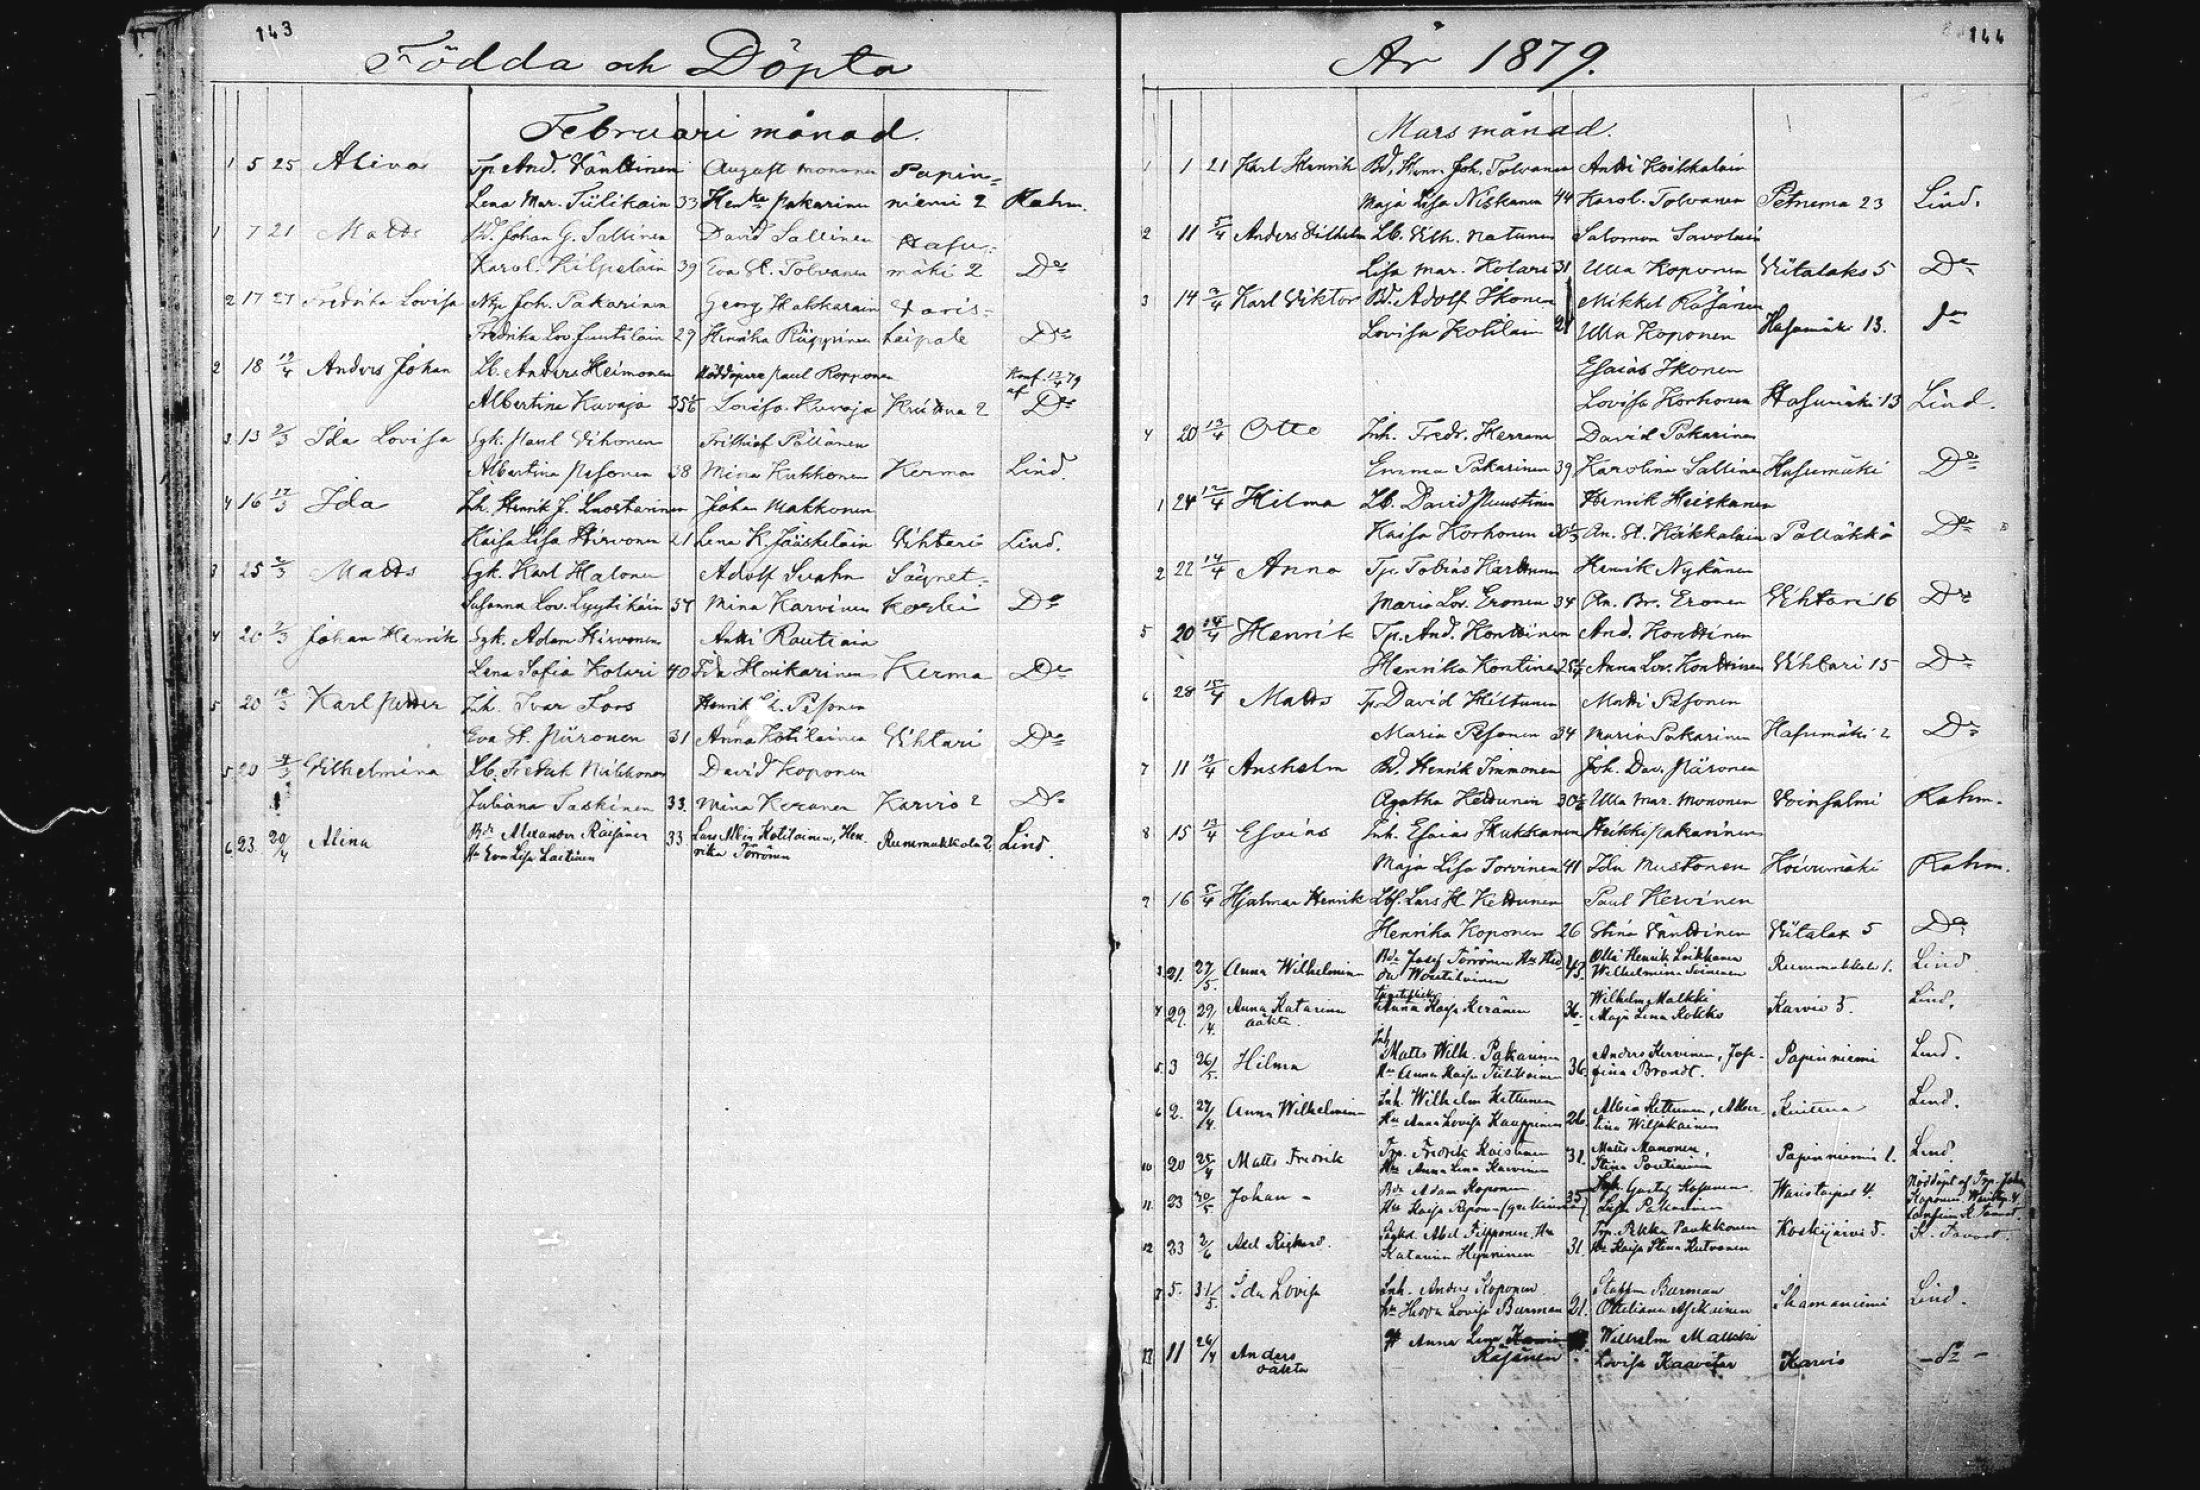 143
Födda och Döpta
Februari månad.
1 5 25 Alina Tp And. Vänttinen August Mononen Papin=
Lena Mar. Tiilikain 33 Pakarinen niemi 2 Rahm.
1 7 21 Matts Bd. Johan G. Sallinen David Sallinen Hasu-
Karol. Kilpeläin 39 Eva St. Tolvanen mäki 2 Do
2 17 27 Fredrika Lovisa Joh. Pakarinen Georg Hakkarain Varis=
Fredrika Lov. Juutilain 29 Henrika Riipinen taipale Do
2 18 Anders Johan Lb. Anders Heimonen Nöddöpare Paul Ropponen Konf.
Albertina Kuvaja 35 Lovisa Kuvaja 2 af Do
3 13 9/3 Ida Lovisa Sgk. Paul Vihonen Pöllänen
Albertina Pesonen 38 Mina Kukkonen Kerma Lind.
4 16 17/3 Ida Lh. Henrik J. Luostarinen Johan Makkonen
Kaisa Lisa Hirvonen 21 Lena K. Jääskeläin Vihtari Lind.
3 25 2/3 Matts Sgk. Karl Halonen Adolf Svahn Säynet=
Susanna Lov. Lyytikäin 37 Mina Karvinen koski Do
4 20 Johan Henrik Sgk. Adam Hirvonen Antti Rautiain
Lena Sofia Kolari 40 Ida Honkarinen Kerma Do
5 20 Karl Petter Lh. Ivar Fors Henrik Pesonen
Eva St. Piironen 31 Anna Kotilainen Vihtari Do
5 20 Vilhelmina Lb. Fredrik Miikkonen David Koponen
Juliana Taskinen 33. Mina Keranen Karvio 2 Do
6 23. 20/4 Alina Alexander Räisänen 33. Lars Albin Kotilainen, Hen-
Hu Eva Lisa Laitinen rika Törrönen Rummukkala 2. Lind.
144
År 1879.
Mars månad.
1 1 21 Karl Henrik Bd. Henr. Joh. Tolvanen Antti Koikkalain
Maja Lisa Niskanen 44 Karol. Tolvanen Petruma 23 Lind.
2 11 5/4 Anders Vilhelm Lb. Vilh. Natunen Salomon Savolain
Lisa Mar. Kolari 31 Ulla Koponen Viitalaks 5 Do
3 14 Karl Viktor Bd. Adolf Ikonen Mikkel Räsänen
Lovisa Kotilain 21 Ulla Koponen Hasumäki 13. Do
Esaias Ikonen
Lovisa Korhonen Hasumäki 13 Lind.
4 20 13/4 Otto Inh. Fredr. Herranen David Pakarinen
Emma Pakarinen 39 Karolina Sallinen Hasumäki Do
1 24 12/4 Hilma Lb. David Puustinen Henrik Heiskanen
Kaisa Korhonen An. St. Koikkalain Pölläkkä Do
2 22 14/4 Anna Tp. Tobias Karttunen Henrik Nykänen
Maria Lov. Eronen 34 An. Br. Eronen Vihtari 16 Do
5 20 14/4 Henrik Tp. And. Konttinen And. Konttinen
Henrika Kontinen Anna Lov. Konttinen Vihtari 15 Do
6 28 15/4 Matts Tp David Hiltunen Matti Pesonen
Maria Pesonen 34 Maria Pakarinen Hasumäki 2 Do
7 11 13/4 Anshelm Bd. Henrik Immonen Joh. Dav. Piironen
Agatha Kettunen 30 Ulla Mar. Mononen Voinsalmi Rahm.
8 15 13/4 Esaias Inh. Esaias Hukkanen Heikki Pakarinen
Maja Lisa Torvinen 41 Ida Mustonen Koivumäki Rahm.
9 16 5/4 Hjalmar Henrik Lars H Kettunen Paul Kervinen
Henrika Koponen 26 Stina Väntinen Viitalax 5 Do
3 21. 27/5. Anna Wilhelmina Josef Törrönen 43. Olli Henrik Leikkanen
Wilhelmina Soininen Rummukkala 1. Lind.
4 29. 29/4. Anna Katarina Anna Kaisa Keränen 36. Wilhelm Malkki
oäkta. Maja Lena Kokko Karvio 5. Lind.
5. 3 26/5. Hilma Inh Matts Wilh. Pakarinen Anders Kervinen, Jose-
Hu Anna Kaisa Tiilikainen 36. fina Brandt. Papinniemi Lind.
6 2. 27/4. Anna Wilhelmina Inh. Wilhelm Kettunen Albin Kettunen, Alber-
Hu Anna Lovisa Kauppinen 26. tina Wiljakainen Lind.
10 20 25/4 Matts Fredrik Trp. Fredrik Koistinen 31. Matts Mononen,
Hu Anna Lena Karvinen Stina Poutiainen Papinniemi 1. Lind.
11. 23 Johan - Adam Koponen 35 Gustaf Kosunen Waristaipal 4. Nöddöpt af Trp. Johan
Hu Kaisa Lisa Pakarinen Koponen
12 23 2/6 Axel Rickard. Abel Filpponen, Hu Trp. Pekka Paukkonen Koskijärvi 5. K. Tavast.
Katarina Hyvärinen 31. Hu Kaisa Stina Rutvonen
7 5. 31/5. Ida Lovisa Inh. Anders Koponen Staffan Burman
Hu Hedda Lovisa Burman 21. Otteliana Asikainen Lind.
13 11 26/4 Anders Anna Lena Wilhelm Malkki
oäkta Räsänen Lovisa Kaavitar Karvio - do -